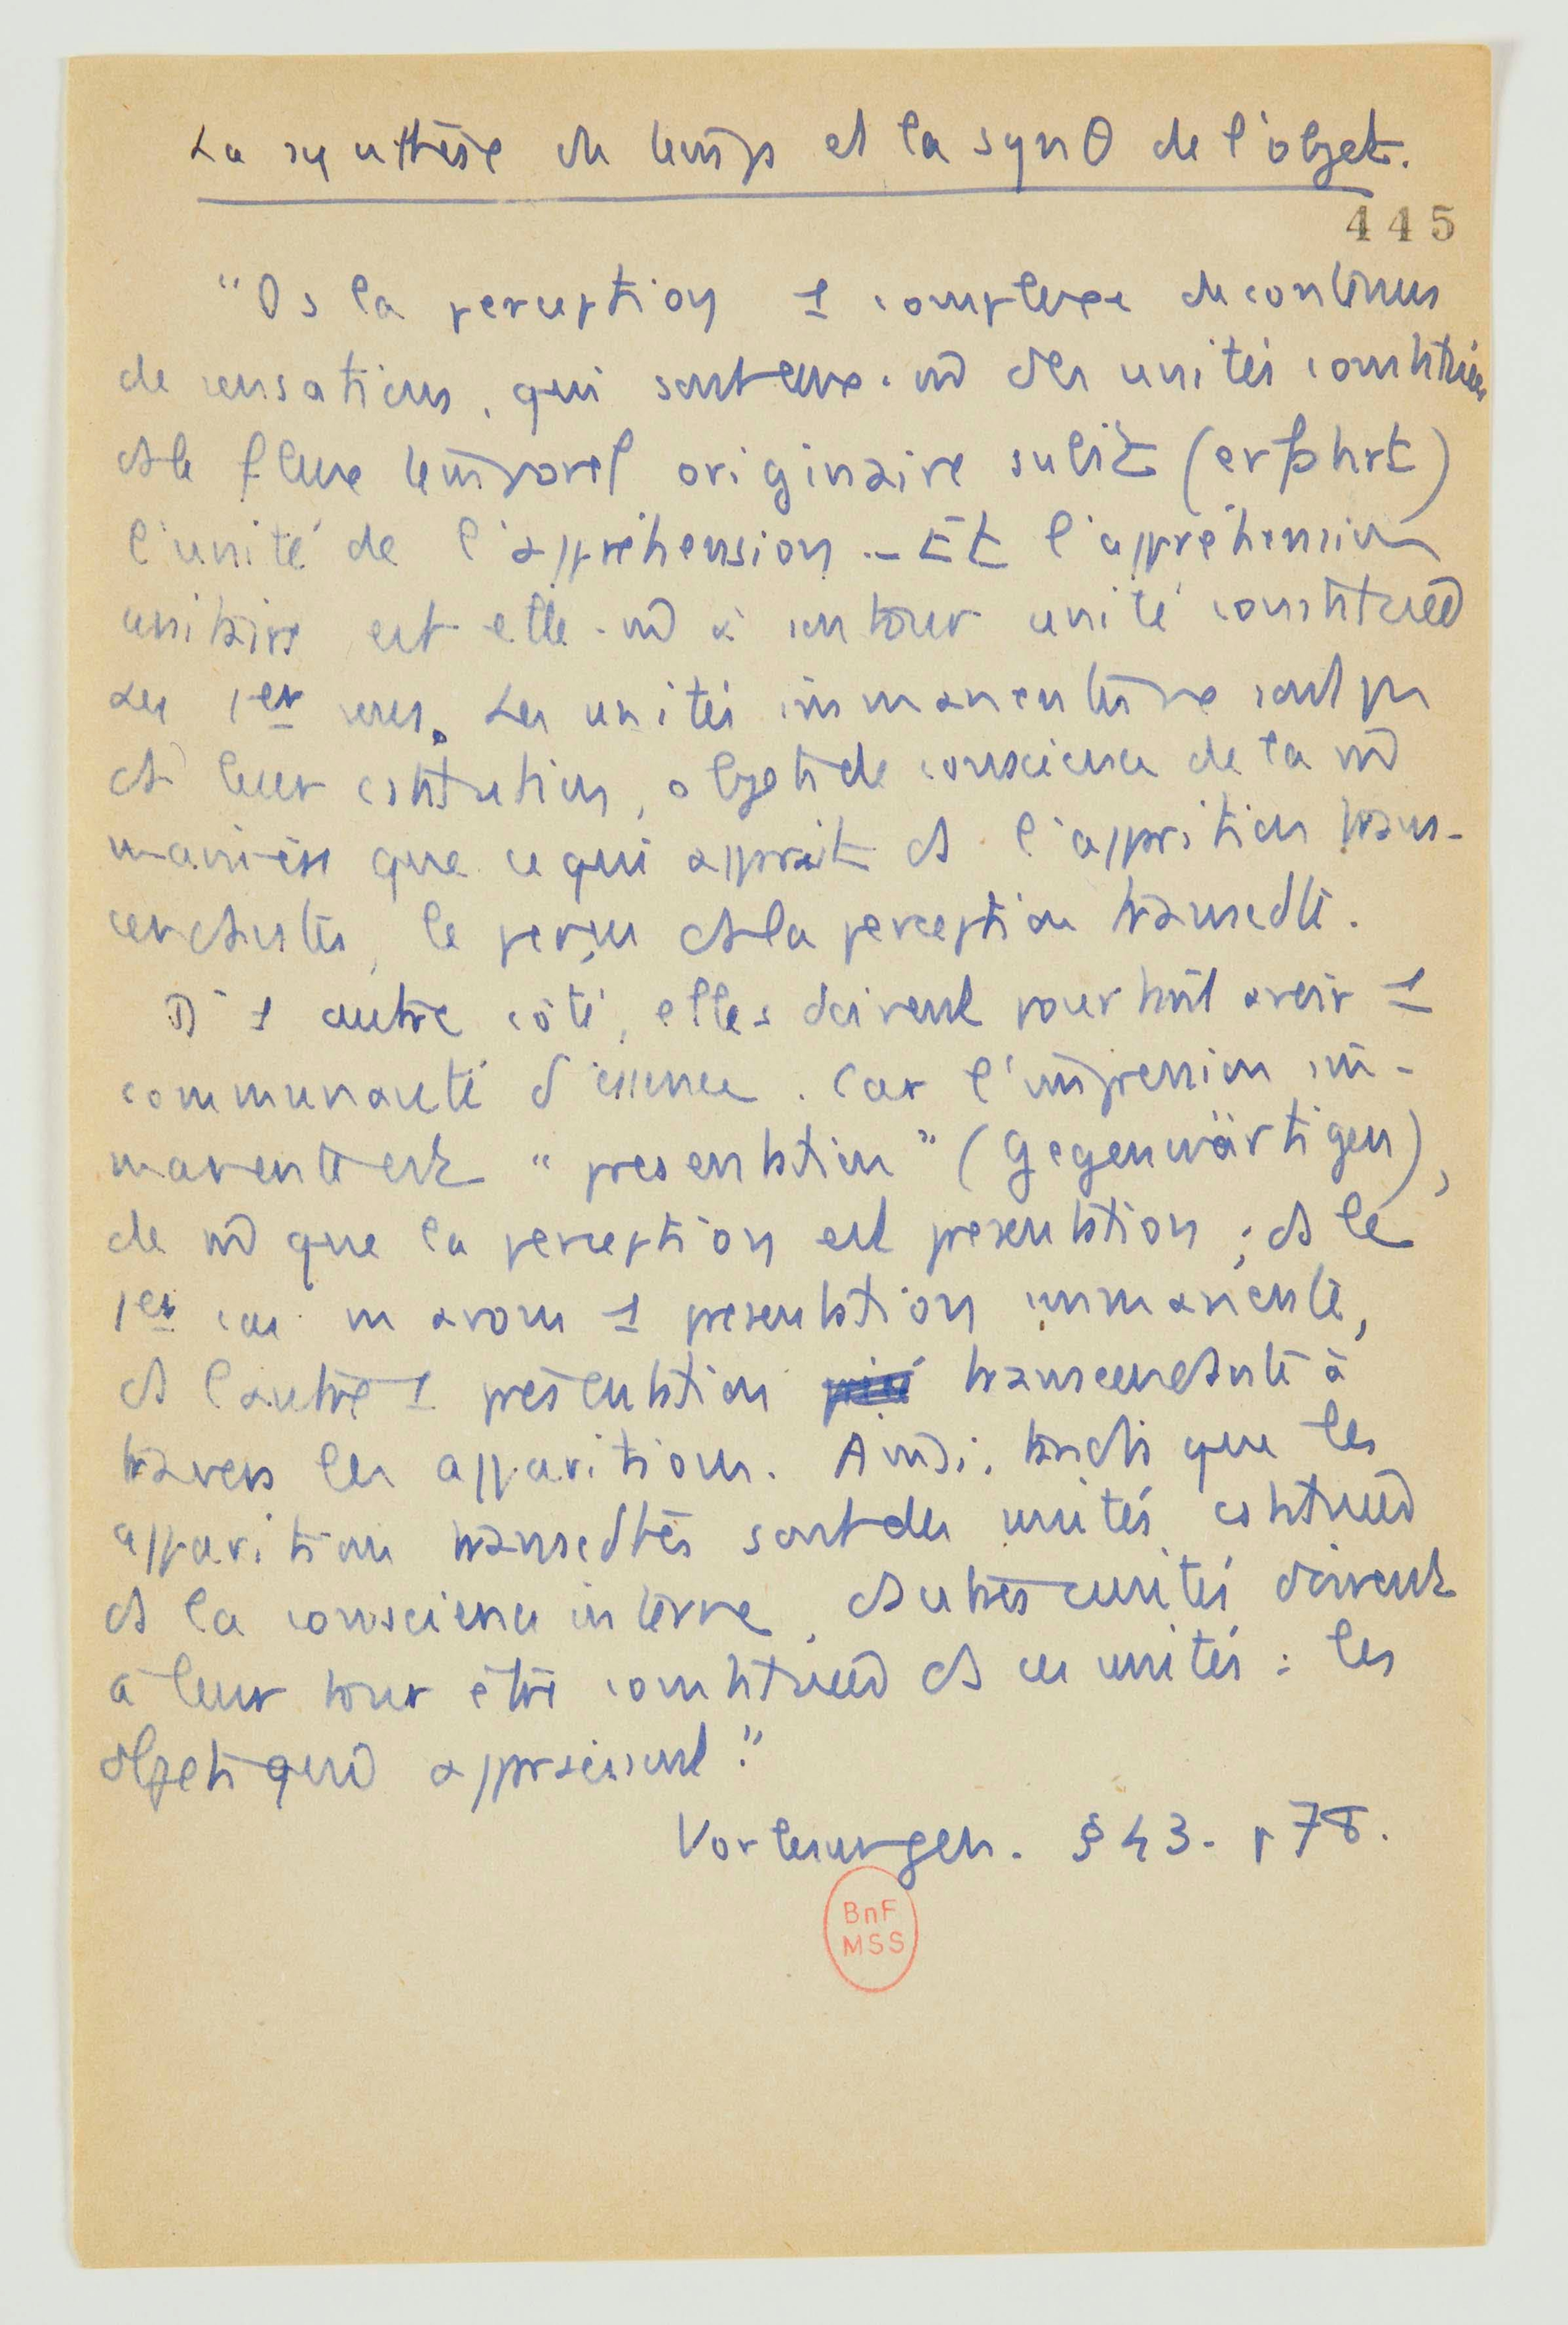 La synthèse du temps et la synθ de l'objet.
445
"Ds la perception 1 complexe de contenus
de sensations, qui sont eux-m̄ des unités constituées
ds le flux temporel originaire subit (erfährt)
l'unité de l'appréhension. – Et l'appréhension
unitaire est elle-m̄ à son tour unité constituée
au 1er sens. Les unités immanentes ne sont pas
ds leur cstitution, objets de conscience de la m̄
manière que ce qui apparait ds l'apparition trans-
cendantes, le perçu ds la perception transcdte.
D'1 autre côté, elles doivent pourtant avoir 1
communauté d'essence. Car l'impression im-
manente est "presentation" (Gegenwärtigen),
de m̄ que la perception est presentation ; ds le
1er cas ns avons 1 presentation immanente,
ds l'autre 1 présentation transcendante à
travers les apparitions. Ainsi, tandis que les
apparitions transcdtes sont des unités cstituées
ds la conscience interne, d'autres unités doivent
à leur tour être constituées ds ces unités : les
objets qui apparaissent."
Vorlesungen. § 43. p 78.
BnF
MSS